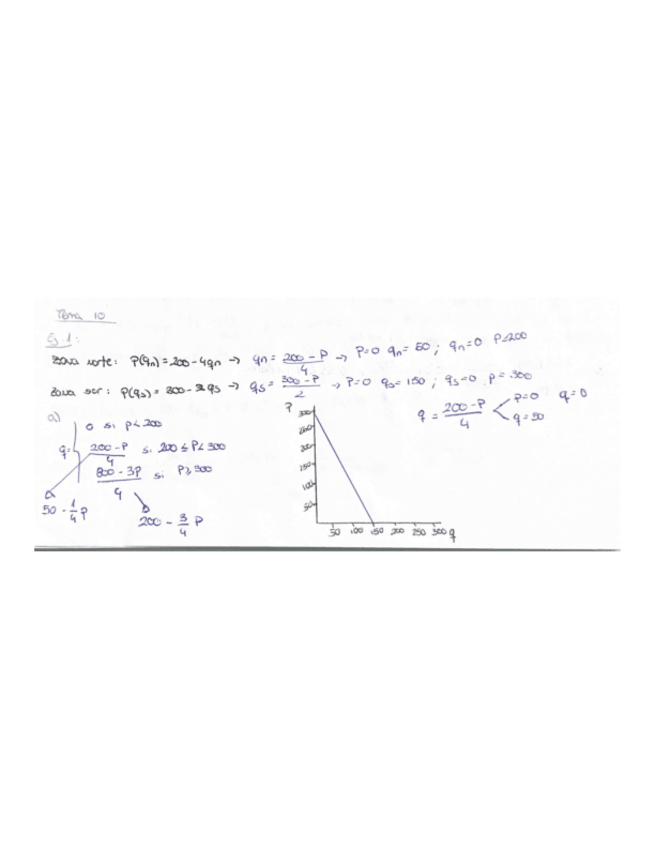 Tema 10
Ej 1:
Zona norte: P(qn) = 200 - 4qn → qn = 200 - P / 4 → P=0 qn = 50 ; qn=0 P=200
Zona sur: P(qs) = 300 - 2qs → qs = 300 - P / 2 → P=0 qs = 150 ; qs=0 P=300
a)
q = 0 si P < 200
200 - P / 4 si 200 ≤ P < 300
800 - 3P / 4 si P ≥ 300
50 - 1/4 P
200 - 3/4 P
P
300
250
200
150
100
50
50 100 150 200 250 300 q
q = 200 - P / 4 P=0 q=0
q=50